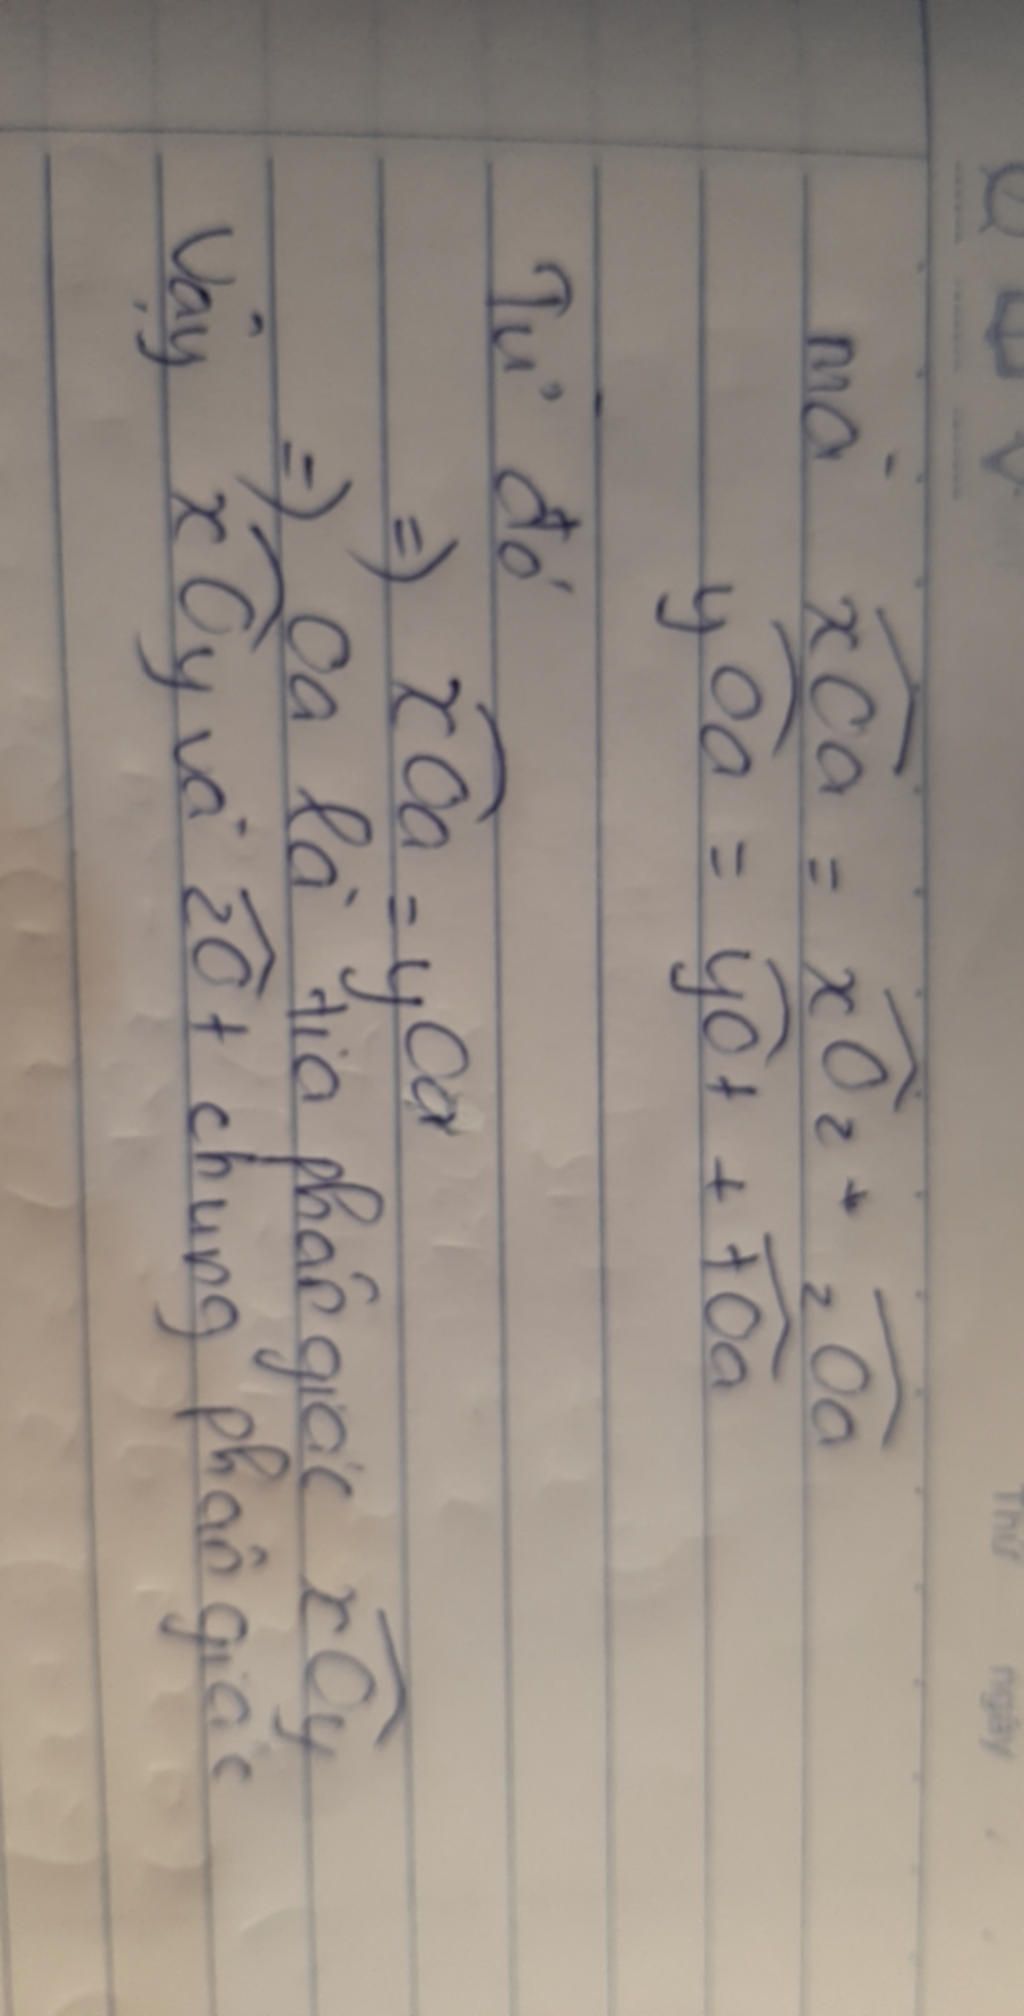 Thứ ngày
mà xOa = xOz + zOa
yOa = yOt + tOa
Từ đó
=) xOa = yOa
=) Oa là tia phân giác xOy
Vậy xOy và zOt chung phân giác